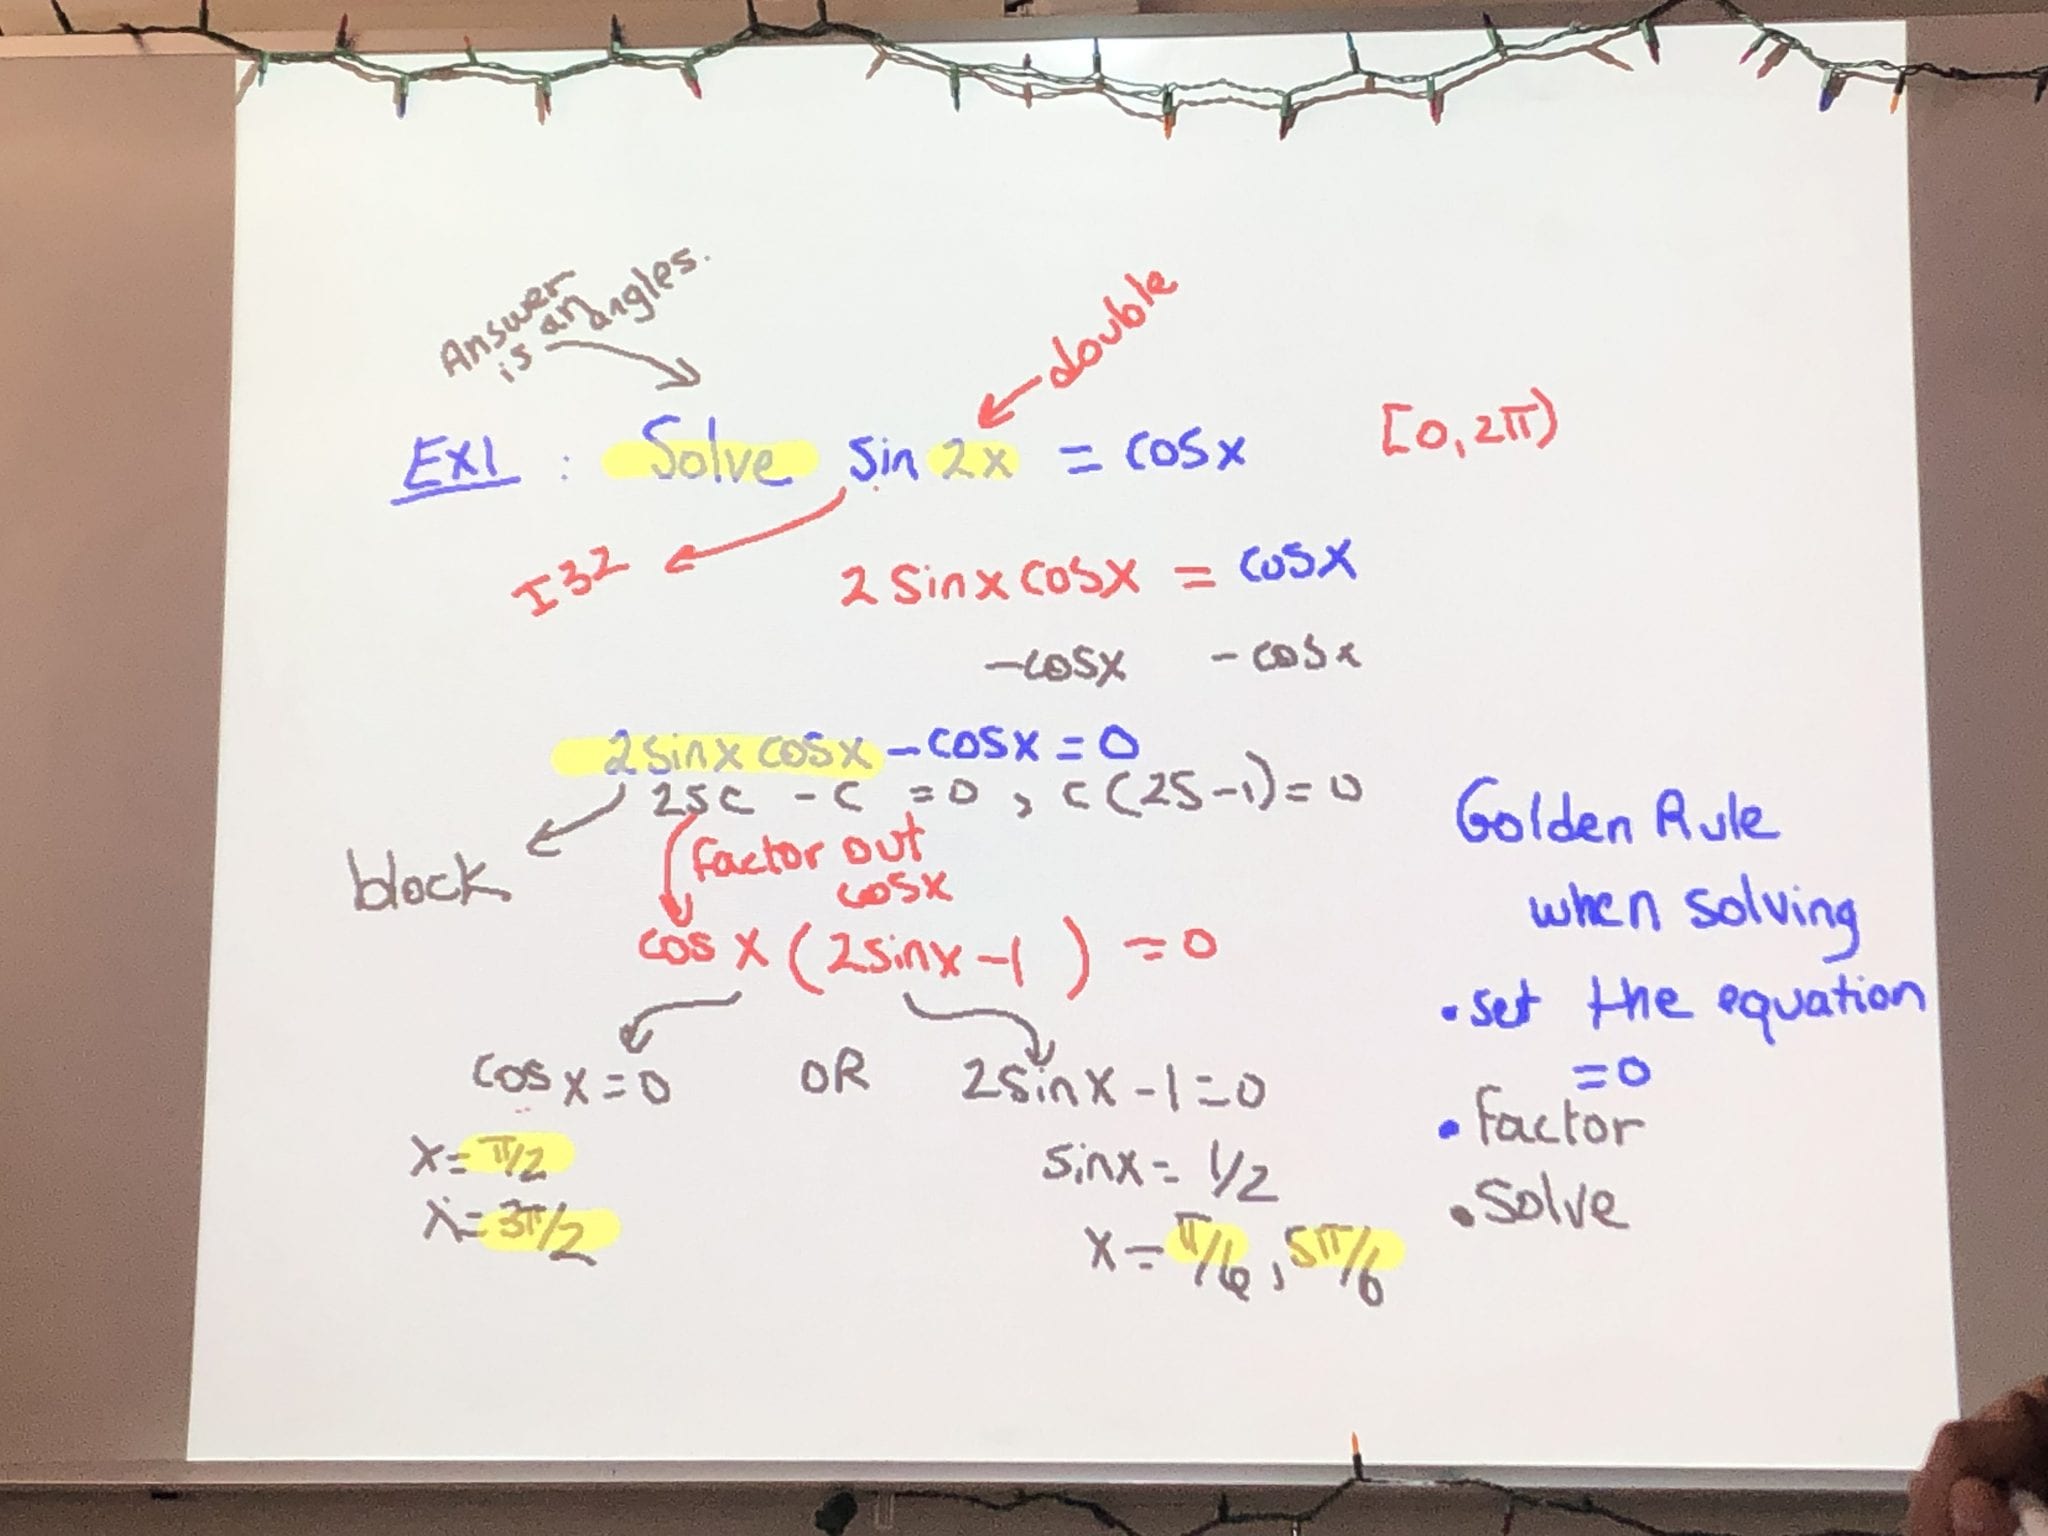 Answer
is an angles.
double
EX1 : Solve sin 2x = cosx [0, 2π)
I32
2 sinx cosx = cosx
-cosx -cosx
2sinx cosx - cosx = 0
2sc - c = 0 , c(2s-1) = 0
block
factor out
cosx
cos x (2sinx - 1 ) = 0
cos x = 0 OR 2sinx - 1 = 0
x = π/2
x = 3π/2
sinx = 1/2
x = π/6 , 5π/6
Golden Rule
when solving
• set the equation
= 0
• factor
• solve